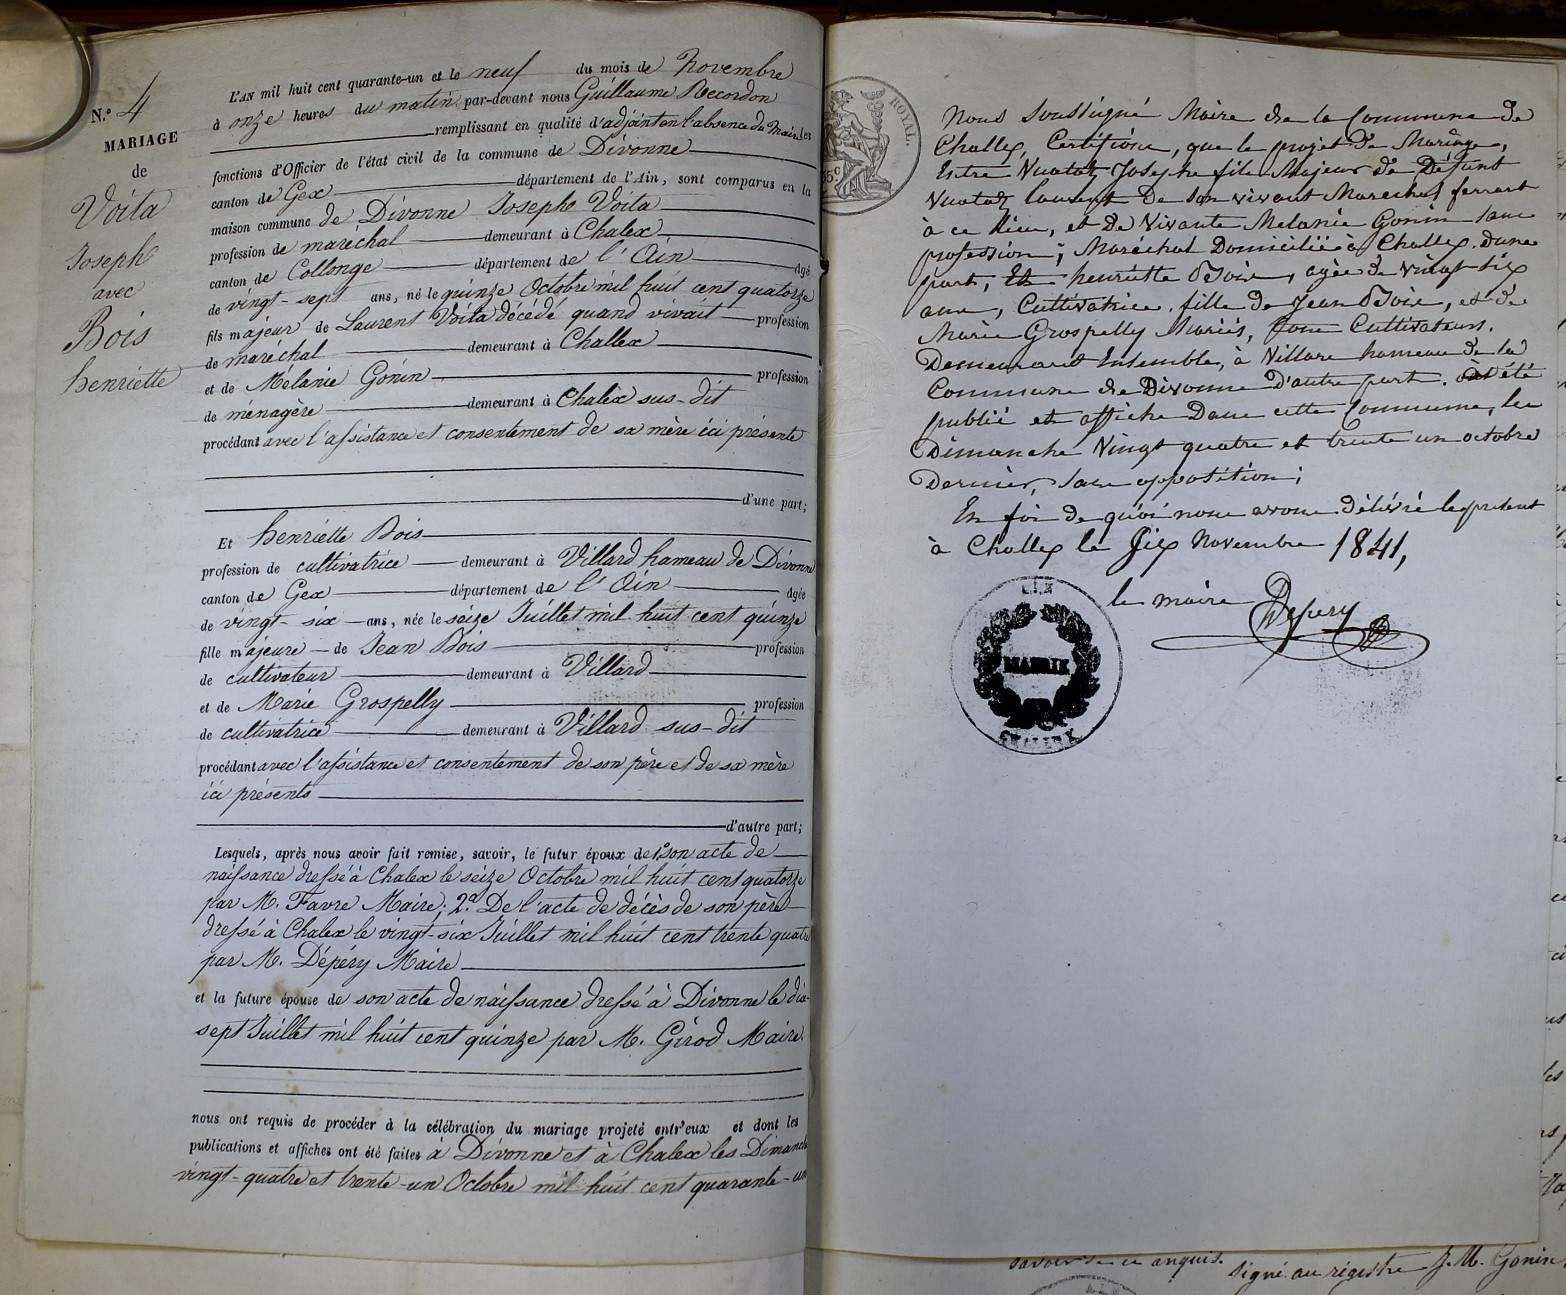 N.° 4
MARIAGE
de
Voita
Joseph
avec
Bois
henriette
L'AN mil huit cent quarante-un et le neuf du mois de Novembre
à onze heures du matin par-devant nous Guillaume Recordon
remplissant en qualité d'adjoint en l'absence du Maire les
fonctions d'Officier de l'état civil de la commune de Divonne
canton de Gex département de l'Ain, sont comparus en la
maison commune de Divonne Joseph Voita
profession de maréchal demeurant à Chalex
canton de Collonge département de l'Ain âgé
de vingt-sept ans, né le quinze Octobre mil huit cent quatorze
fils majeur de Laurent Voita décédé quand vivait profession
de maréchal demeurant à Challex
et de Mélanie Gonin profession
de ménagère demeurant à Chalex sus-dit
procédant avec l'assistance et consentement de sa mère ici présente
d'une part;
Et henriette Bois
profession de cultivatrice demeurant à Villard hameau de Divonne
canton de Gex département de l'Ain âgée
de vingt-six ans, née le seize Juillet mil huit cent quinze
fille majeure de Jean Bois profession
de cultivateur demeurant à Villard
et de Marie Grospelly profession
de cultivatrice demeurant à Villard sus-dit
procédant avec l'assistance et consentement de son père et de sa mère
ici présents
d'autre part;
Lesquels, après nous avoir fait remise, savoir, le futur époux de 1.° son acte de
naissance dressé à Chalex le seize Octobre mil huit cent quatorze
par M. Favre Maire; 2.° De l'acte de décès de son père
dressé à Chalex le vingt-six Juillet mil huit cent trente quatre
par M. Dépéry Maire
et la future épouse de son acte de naissance dressé à Divonne le dix-
sept Juillet mil huit cent quinze par M. Girod Maire.
nous ont requis de procéder à la célébration du mariage projeté entr'eux et dont les
publications et affiches ont été faites à Divonne et à Chalex les Dimanche
vingt-quatre et trente-un Octobre mil huit cent quarante-un
ROYAL
Nous soussigné Maire de la Commune de
Challex, Certifions, que le projet de Mariage,
Entre Vuataz Josephe fils Majeur de Défunt
Vuataz laurent De son vivant Marechal ferrant
à ce lieu, et De Vivante Melanie Gonin sans
profession; Maréchal Domicilié à Challex. d'une
part, Et henriette Boix, agée de vingt six
ans, Cultivatrice fille de Jean Boix, et de
Marie Grospelly Mariés, Cultivateurs.
Demeurant Ensemble, à Villars hameau de la
Commune de Divonne D'autre part. à été
publié et affiché Dans cette Commune, les
Dimanche Vingt quatre et trente un octobre
Dernier, sans opposition;
En foi de quoi nous avons délivré le présent
à Challex le Six Novembre 1841,
le maire Depery
AIN
MAIRIE
CHALLEX
savoir de ce enquis. signé au régistre J. M. Gonin